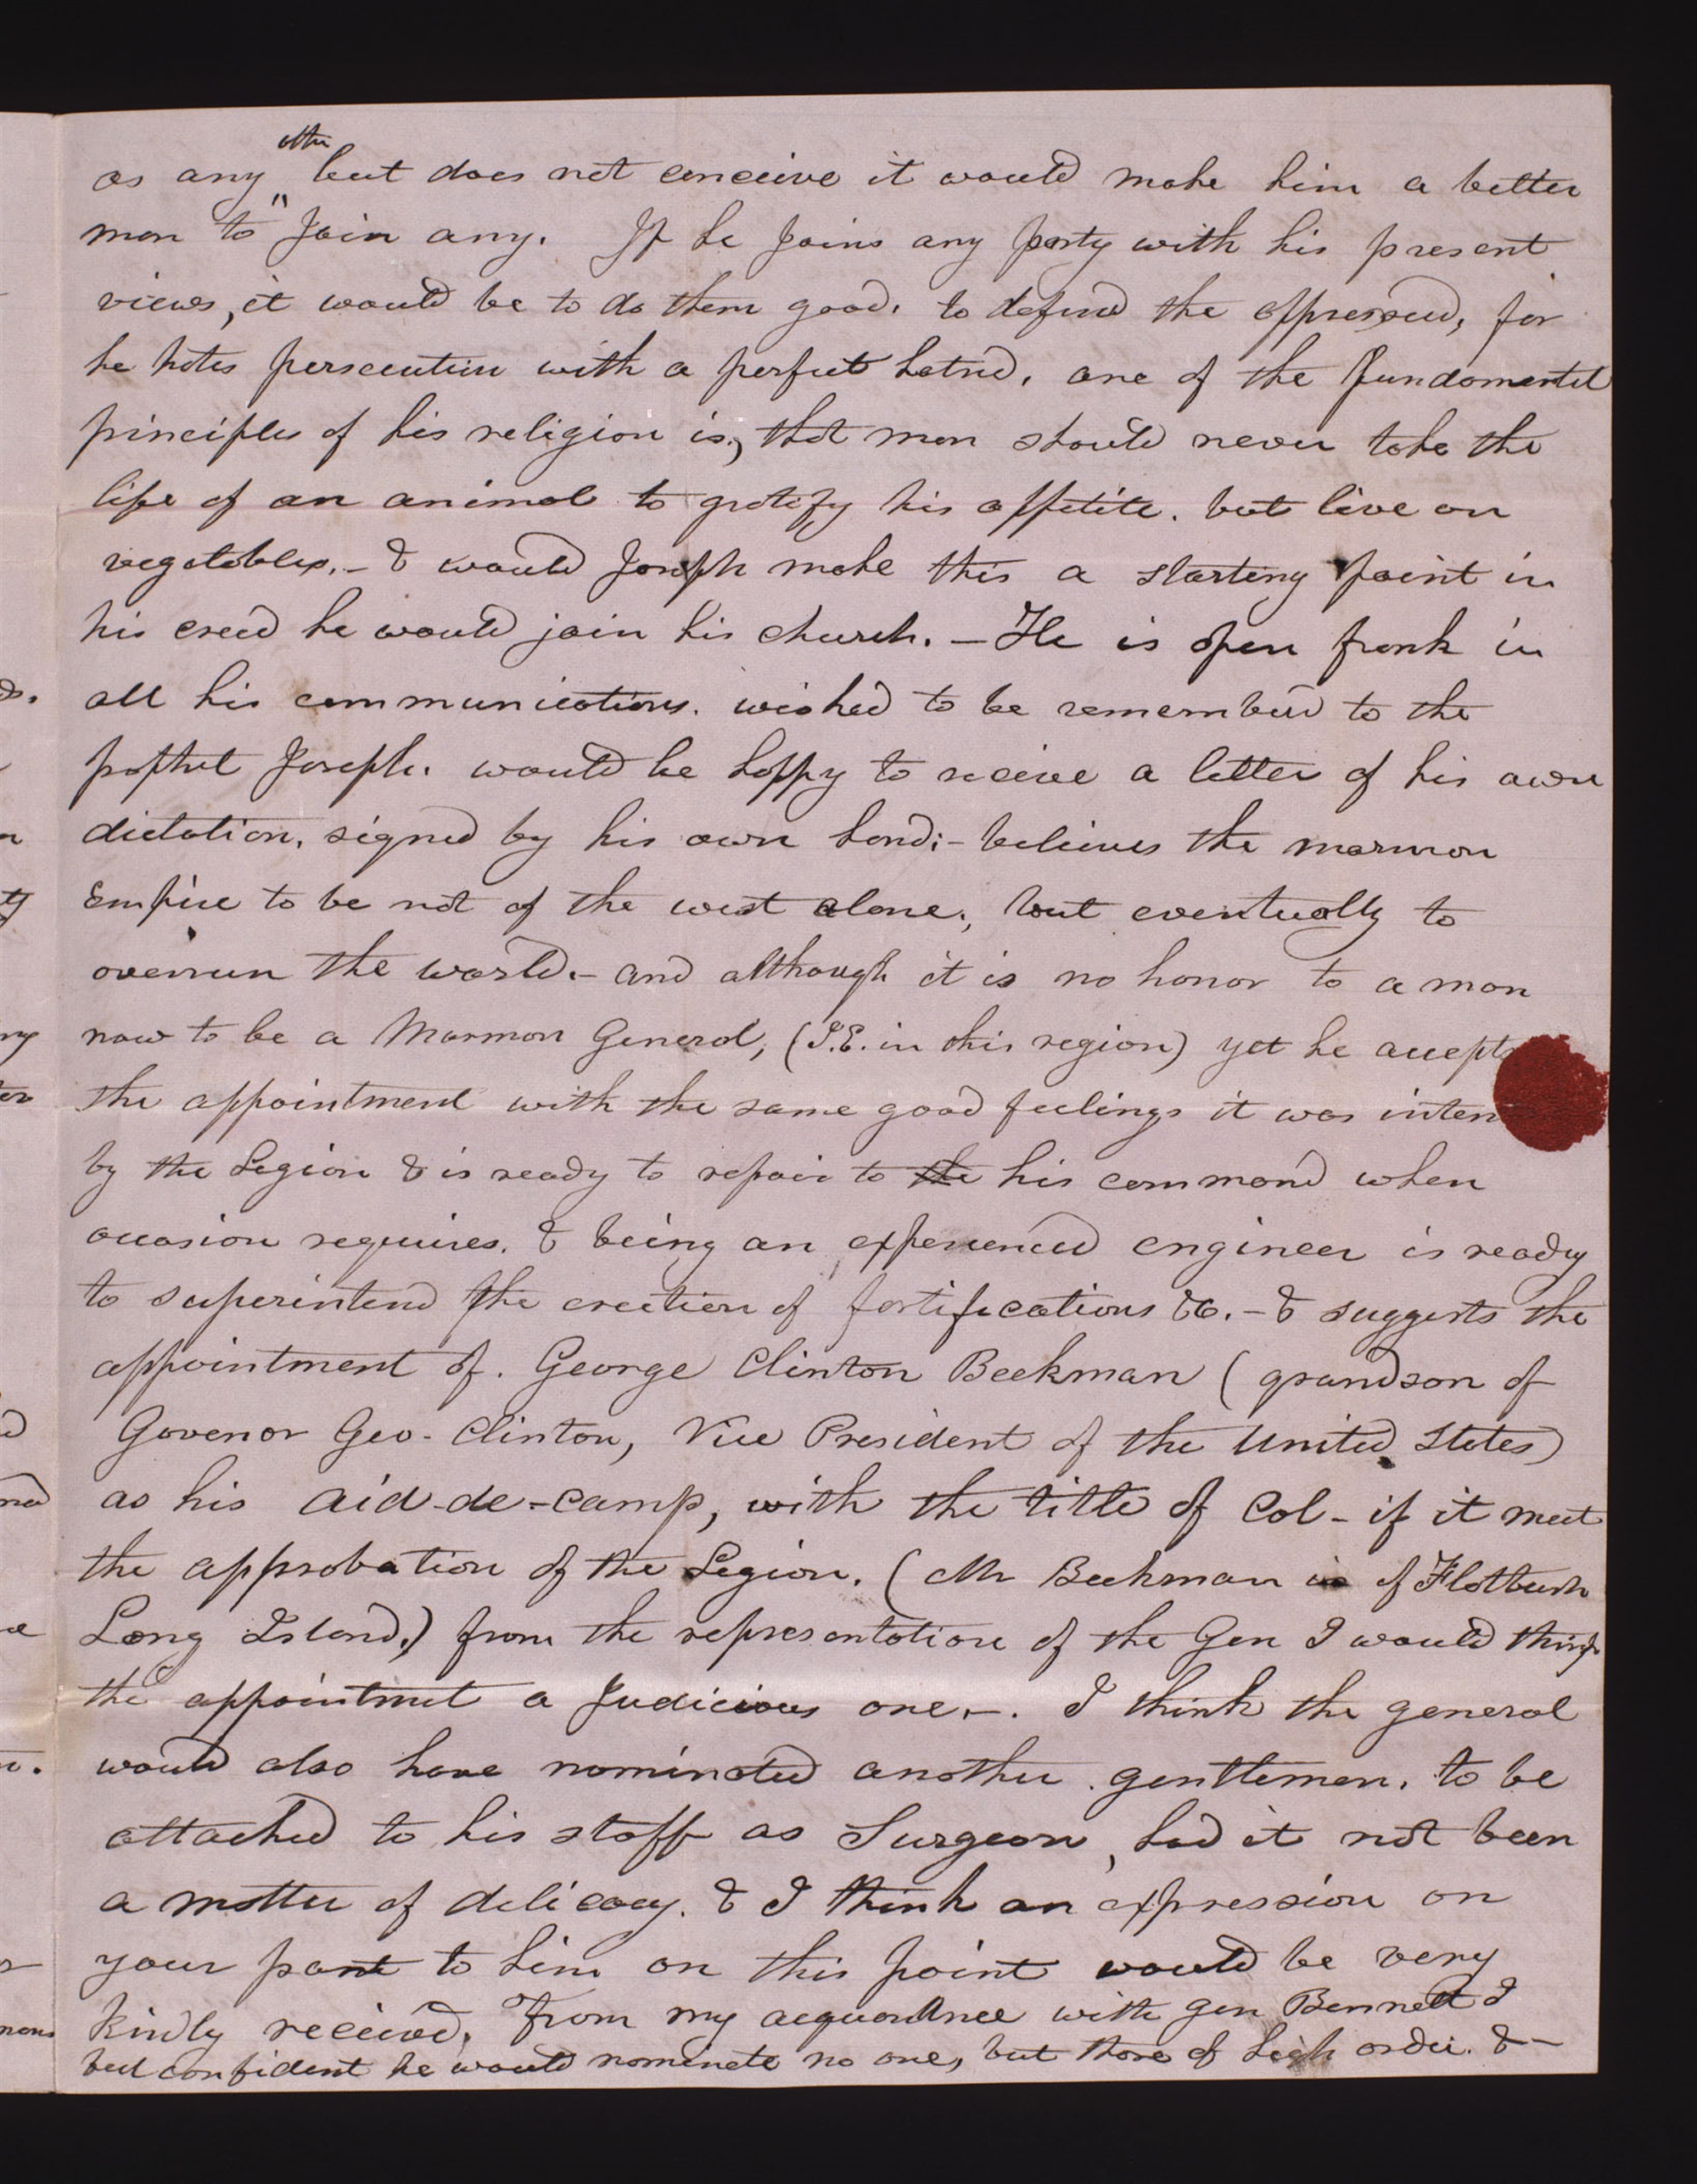 as any other but does not conceive it would make him a better
man to "Join any. If he Joins any party with his present
views, it would be to do them good. to defend the oppressed, for
he hates persecution with a perfect hatred. one of the fundamental
principles of his religion is, that man should never take the
life of an animal to gratify his appetite. but live on
vegetables. - & would Joseph make this a starting point in
his creed he would join his church. - He is open frank in
all his communications. wished to be remembered to the
prophet Joseph. would be happy to receive a letter of his own
dictation, signed by his own hand; - believes the mormon
Empire to be not of the west alone, but eventually to
overrun the world. - and although it is no honor to a man
now to be a Mormon General, (I.E. in this region) yet he accepts
the appointment with the same good feelings it was inten
by the Legion & is ready to repair to the his command when
occasion requires. & being an experienced engineer is ready
to superintend the erection of fortifications &c. - & suggests the
appointment of. George Clinton Beekman (grandson of
Govenor Geo - Clinton, Vice President of the United States)
as his aid-de-camp, with the title of Col - if it meet
the approbation of the Legion. (Mr Beekman is of Flatbush
Long Island.) from the representation of the Gen I would think
the appointmet a Judicious one. -. I think the general
would also have nominated another gentleman. to be
attached to his staff as Surgeon, had it not been
a matter of delicacy. & I think an expression on
your part to him on this point would be very
kindly received. From my acquantnce with gen Bennett I
feel confident he would nominate no one, but those of high order. & -